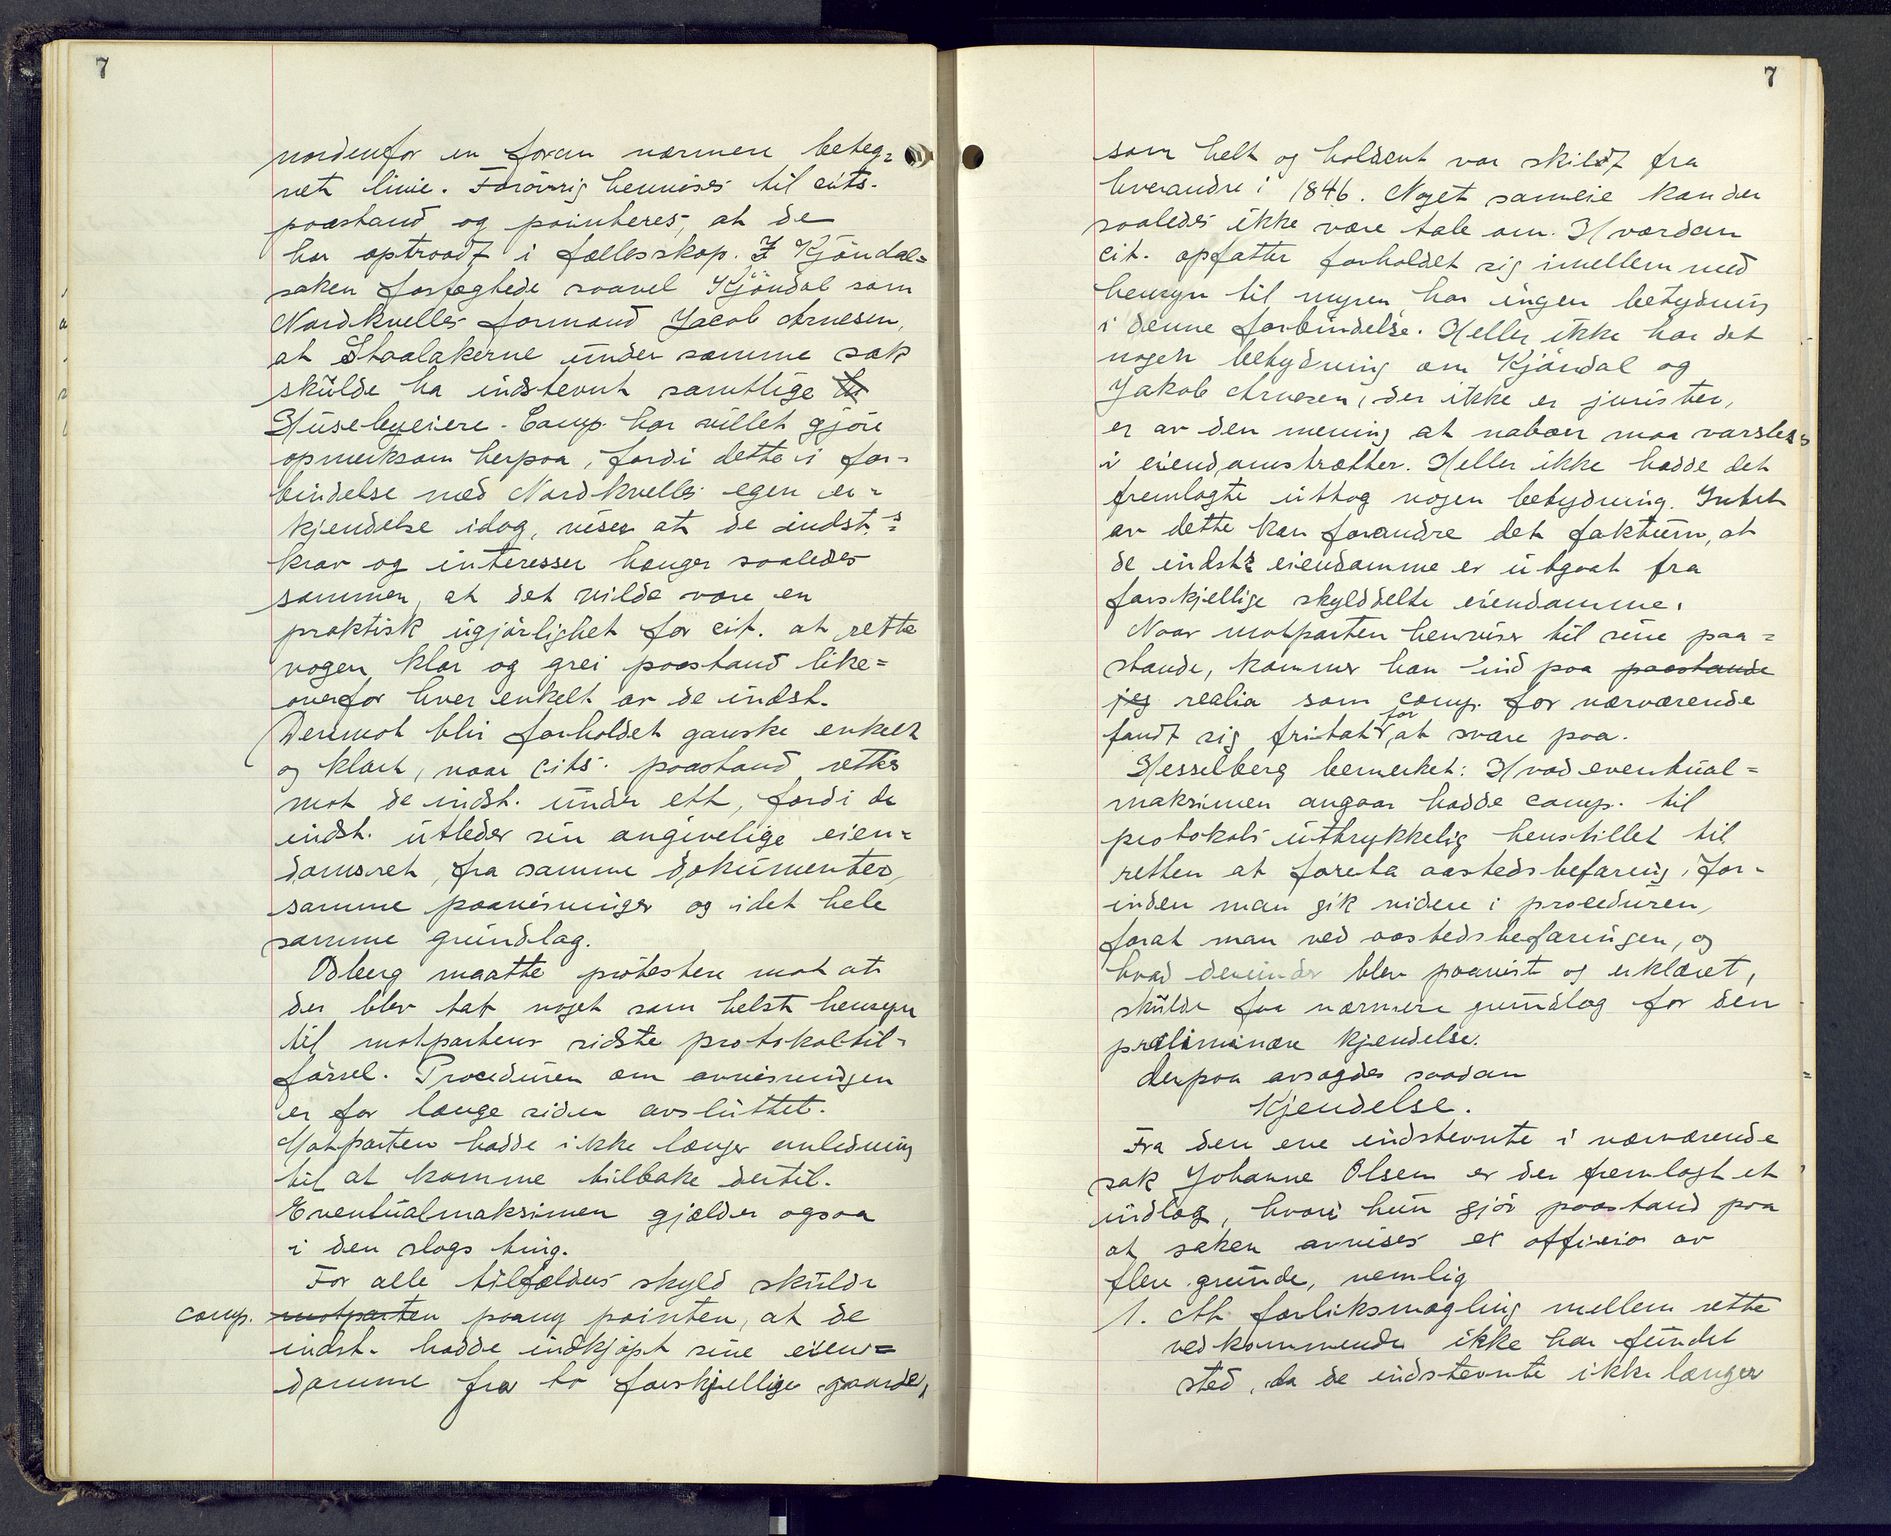 7
nordenfor en foran nærmere beteg-
net linie. Forövrig henvises til cits.
paastand og pointeres, at de
har optraadt i fællesskap. I Kjöndal-
saken forfegtede saavel Kjöndal som
Nordkvelles formand Jacob Arnesen,
at Staalakerne under samme sak
skulde ha indstevnt samtlige
Husebyeiere. Comp. har villet gjöre
opmerksom herpaa, fordi dette i for-
bindelse med Nordkvelles egen er-
kjendelse idag, viser at de indst.s
krav og interesser hænger saaledes
sammen, at det vilde være en
praktisk ugjörlighet for cit. at rette
nogen klar og grei paastand like-
overfor hver enkelt av de indst.
Derimot blir forholdet ganske enkelt
og klart, naar cits. paastand rettes
mot de indst. under ett, fordi de
indst. utleder sin angivelige eien-
domsret, fra samme dokumenter,
samme paavisninger og i det hele
samme grundlag.
Odberg maatte protestere mot at
der blev tat noget som helst hensyn
til motpartens sidste protokoltil-
försel. Proceduren om avvisningen
er for længe siden avsluttet.
Motparten hadde ikke længer anledning
til at komme tilbake dertil.
Eventualmaksimen gjælder ogsaa
i den slags ting.
For alle tilfælders skyld skulde
comp. motparten paany pointere, at de
indst. hadde indkjöpt sine eien-
domme fra to forskjellige gaarde,
7
som helt og holdent var skildt fra
hverandre i 1846. Noget sameie kan der
saaledes ikke være tale om. Hvordan
cit. opfatter forholdet sig imellem med
hensyn til myren har ingen betydning
i denne forbindelse. Heller ikke har det
nogen betydning om Kjöndal og
Jakob Arnesen, der ikke er jurister,
er av den mening at naboer maa varsles
i eiendomstrætter. Heller ikke hadde det
fremlagte uttog nogen betydning. Intet
av dette kan forandre det faktum, at
de indst.s eiendomme er utgaat fra
forskjellige skylddelte eiendomme.
Naar motparten henviser til sine paa-
stande, kommer han ind paa paastande
jeg realia som comp. for nærværende
fandt sig fritat for at svare paa.
Hesselberg bemerket: Hvad eventual-
maksimen angaar hadde comp. til
protokols uttrykkelig henstillet til
retten at foreta aastedsbefaring, for-
inden man gik videre i proceduren,
forat man ved aastedsbefaringen, og
hvad derunder blev paavist og erklæret,
skulde faa nærmere grundlag for den
præliminære kjendelse.
Derpaa avsagdes saadan
Kjendelse.
Fra den ene indstevnte i nærværende
sak Johanne Olsen er der fremlagt et
indlæg, hvori hun gjör paastand paa
at saken avvises ex officio av
flere grunde, nemlig
1. At forliksmægling mellem rette
vedkommende ikke har fundet
sted, da de indstevnte ikke længer